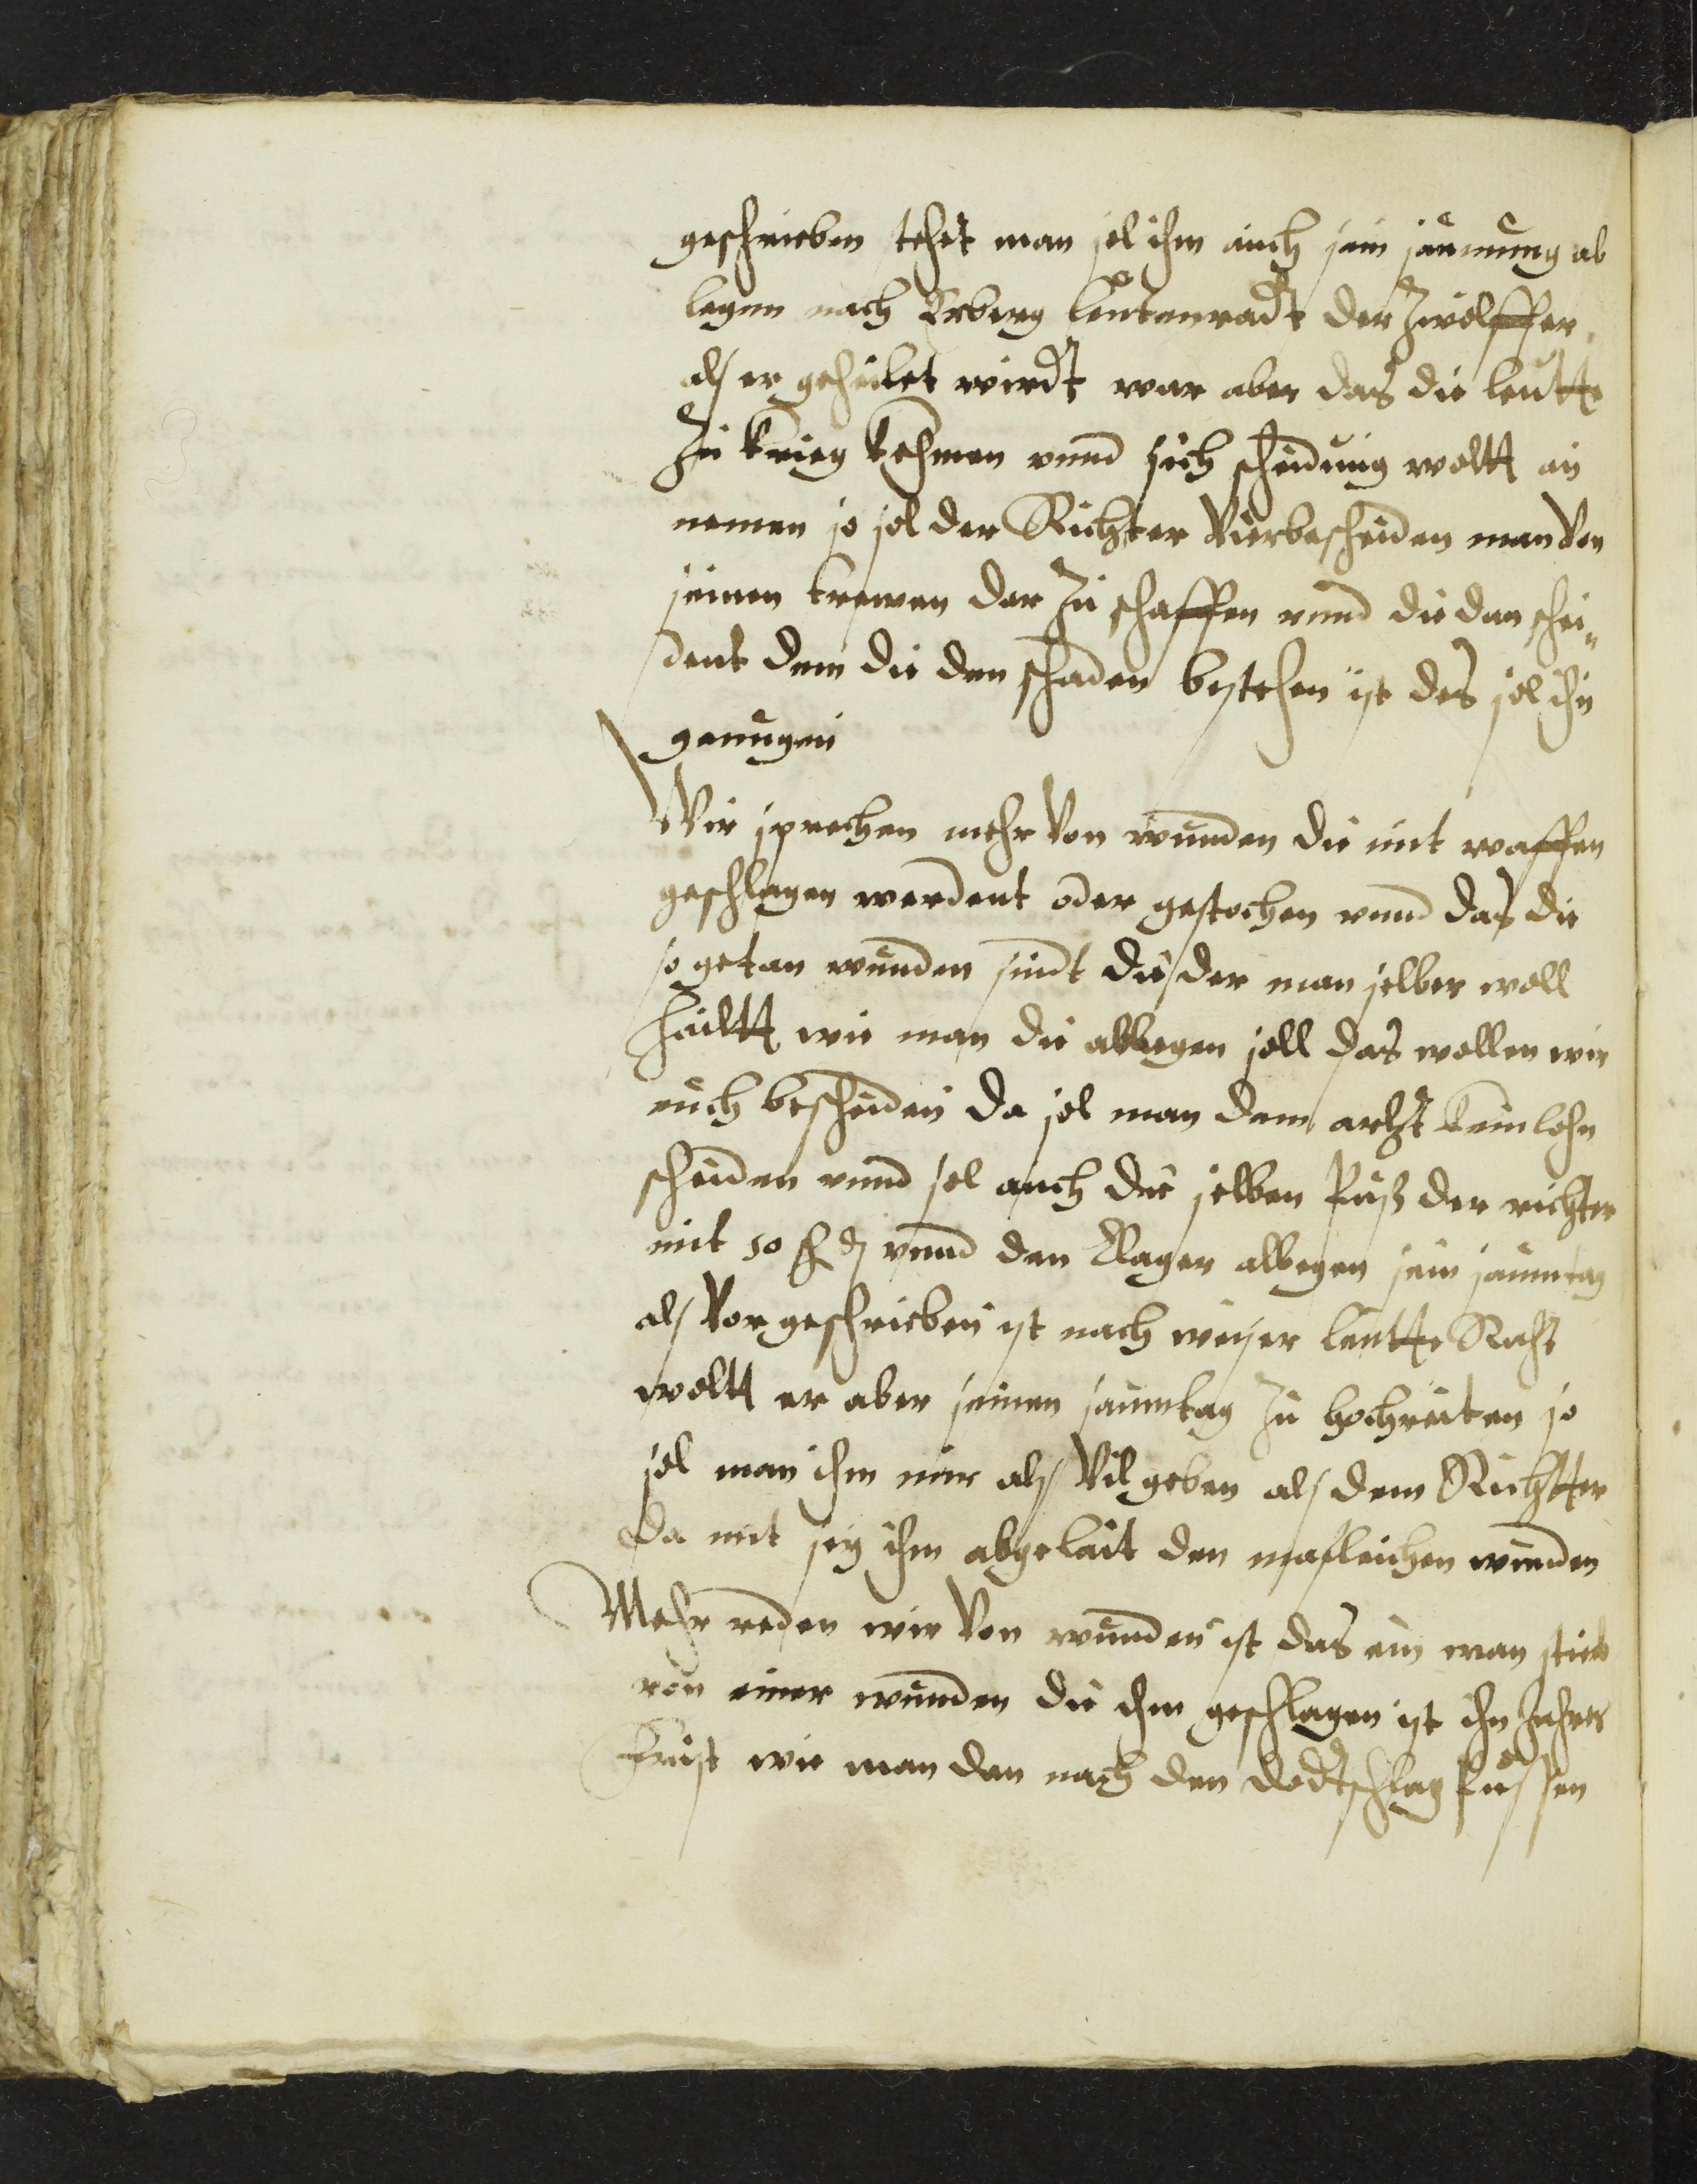 geschrieben stehet man sol ihm auch sein säumung ab
legen nach Erberg leuten radt der zwölffer
als er gehailet wirdt war aber das die leutte
zu krieg kehmen vnnd sich scheidung woltt an
nemen so sol der Richter Vier bescheiden man Von
seinen trewen dar zu schaffen vnnd die dan schei„
dent dem die den schaden bestehen ist des sol ihn
genügen
Wir sprechen mehr Von wunden die mit waffen
geschlagen werdent oder gestochen vnnd das die
so getan wunden sindt die der man selber woll
hailtt wie man die ablegen soll das wollen wir
euch bescheiden da sol man dem artzt kein lohn
scheiden vnnd sol auch die selben puß der richter
mit 10 ß ₰ vnnd den klager ablegen sein saumtag
als Vor geschrieben ist nach weiser leutte Racht
woltt er aber seinen saumtag zu hoch reiten so
sol man ihm nur als Vil geben als dem Richtter
da mit sey ihm abgelait den masleichen wunden
Mehr reden wir Von wunden ist das ein man stirb
von einer wunden die ihm geschlagen ist ihn Jahrs
frist wie man dan nach den dodtschlag püessen